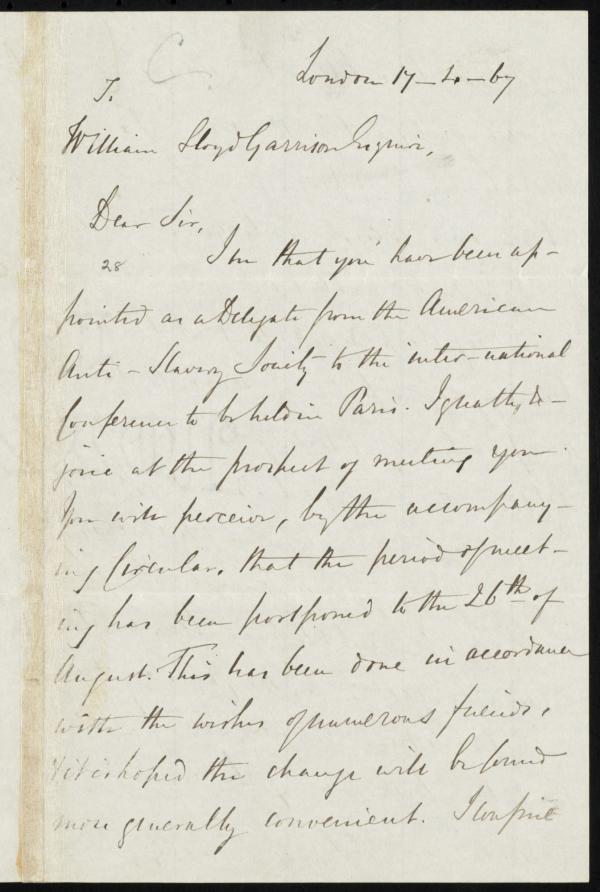 C
London 17–4–67
To
William Lloyd Garrison Esquire,
Dear Sir,
28
I see that you have been ap-
pointed as a Delegate from the American
Anti-Slavery Society to the inter-national
Conference to be held in Paris. I greatly re-
joice at the prospect of meeting you.
You will perceive, by the accompany-
ing Circular, that the period of meet-
ing has been postponed to the 26th of
August. This has been done in accordance
with the wishes of numerous friends,
& it is hoped the change will be found
more generally convenient. I confine